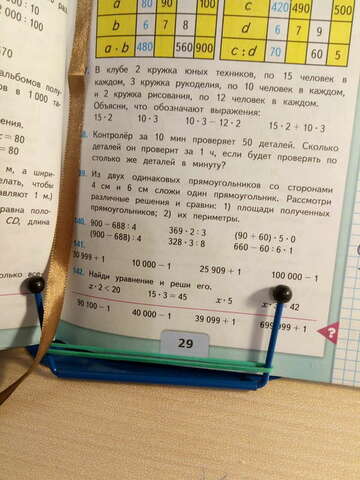 00 : 10
000 : 10
570
альбомов полу-
ов в 1 000 та-
ения.
= 80
= 80
м, а шири-
елать, чтобы
авляют 1 м.)
равна поло-
CD, длина
колько
a 80 90 100
b 6 7 8
a · b 480 560 900
c 420 490 500
d 6 7 9
c : d 70 60 5
В клубе 2 кружка юных техников, по 15 человек в
каждом, 3 кружка рукоделия, по 10 человек в каждом,
и 2 кружка рисования, по 12 человек в каждом.
Объясни, что обозначают выражения:
15 · 2 10 · 3 10 · 3 − 12 · 2 15 · 2 + 10 · 3
Контролёр за 10 мин проверяет 50 деталей. Сколько
деталей он проверит за 1 ч, если будет проверять по
столько же деталей в минуту?
Из двух одинаковых прямоугольников со сторонами
4 см и 6 см сложи один прямоугольник. Рассмотри
различные решения и сравни: 1) площади полученных
прямоугольников; 2) их периметры.
140. 900 − 688 : 4 369 · 2 : 3 (90 + 60) · 5 · 0
(900 − 688) : 4 328 · 3 : 8 660 − 60 : 6 · 1
141.
99 999 + 1 10 000 − 1 25 909 + 1 100 000 − 1
142. Найди уравнение и реши его.
x · 2 < 20 15 · 3 = 45 x · 5 42
90 100 − 1 40 000 − 1 39 099 + 1 699 999 + 1
?
29